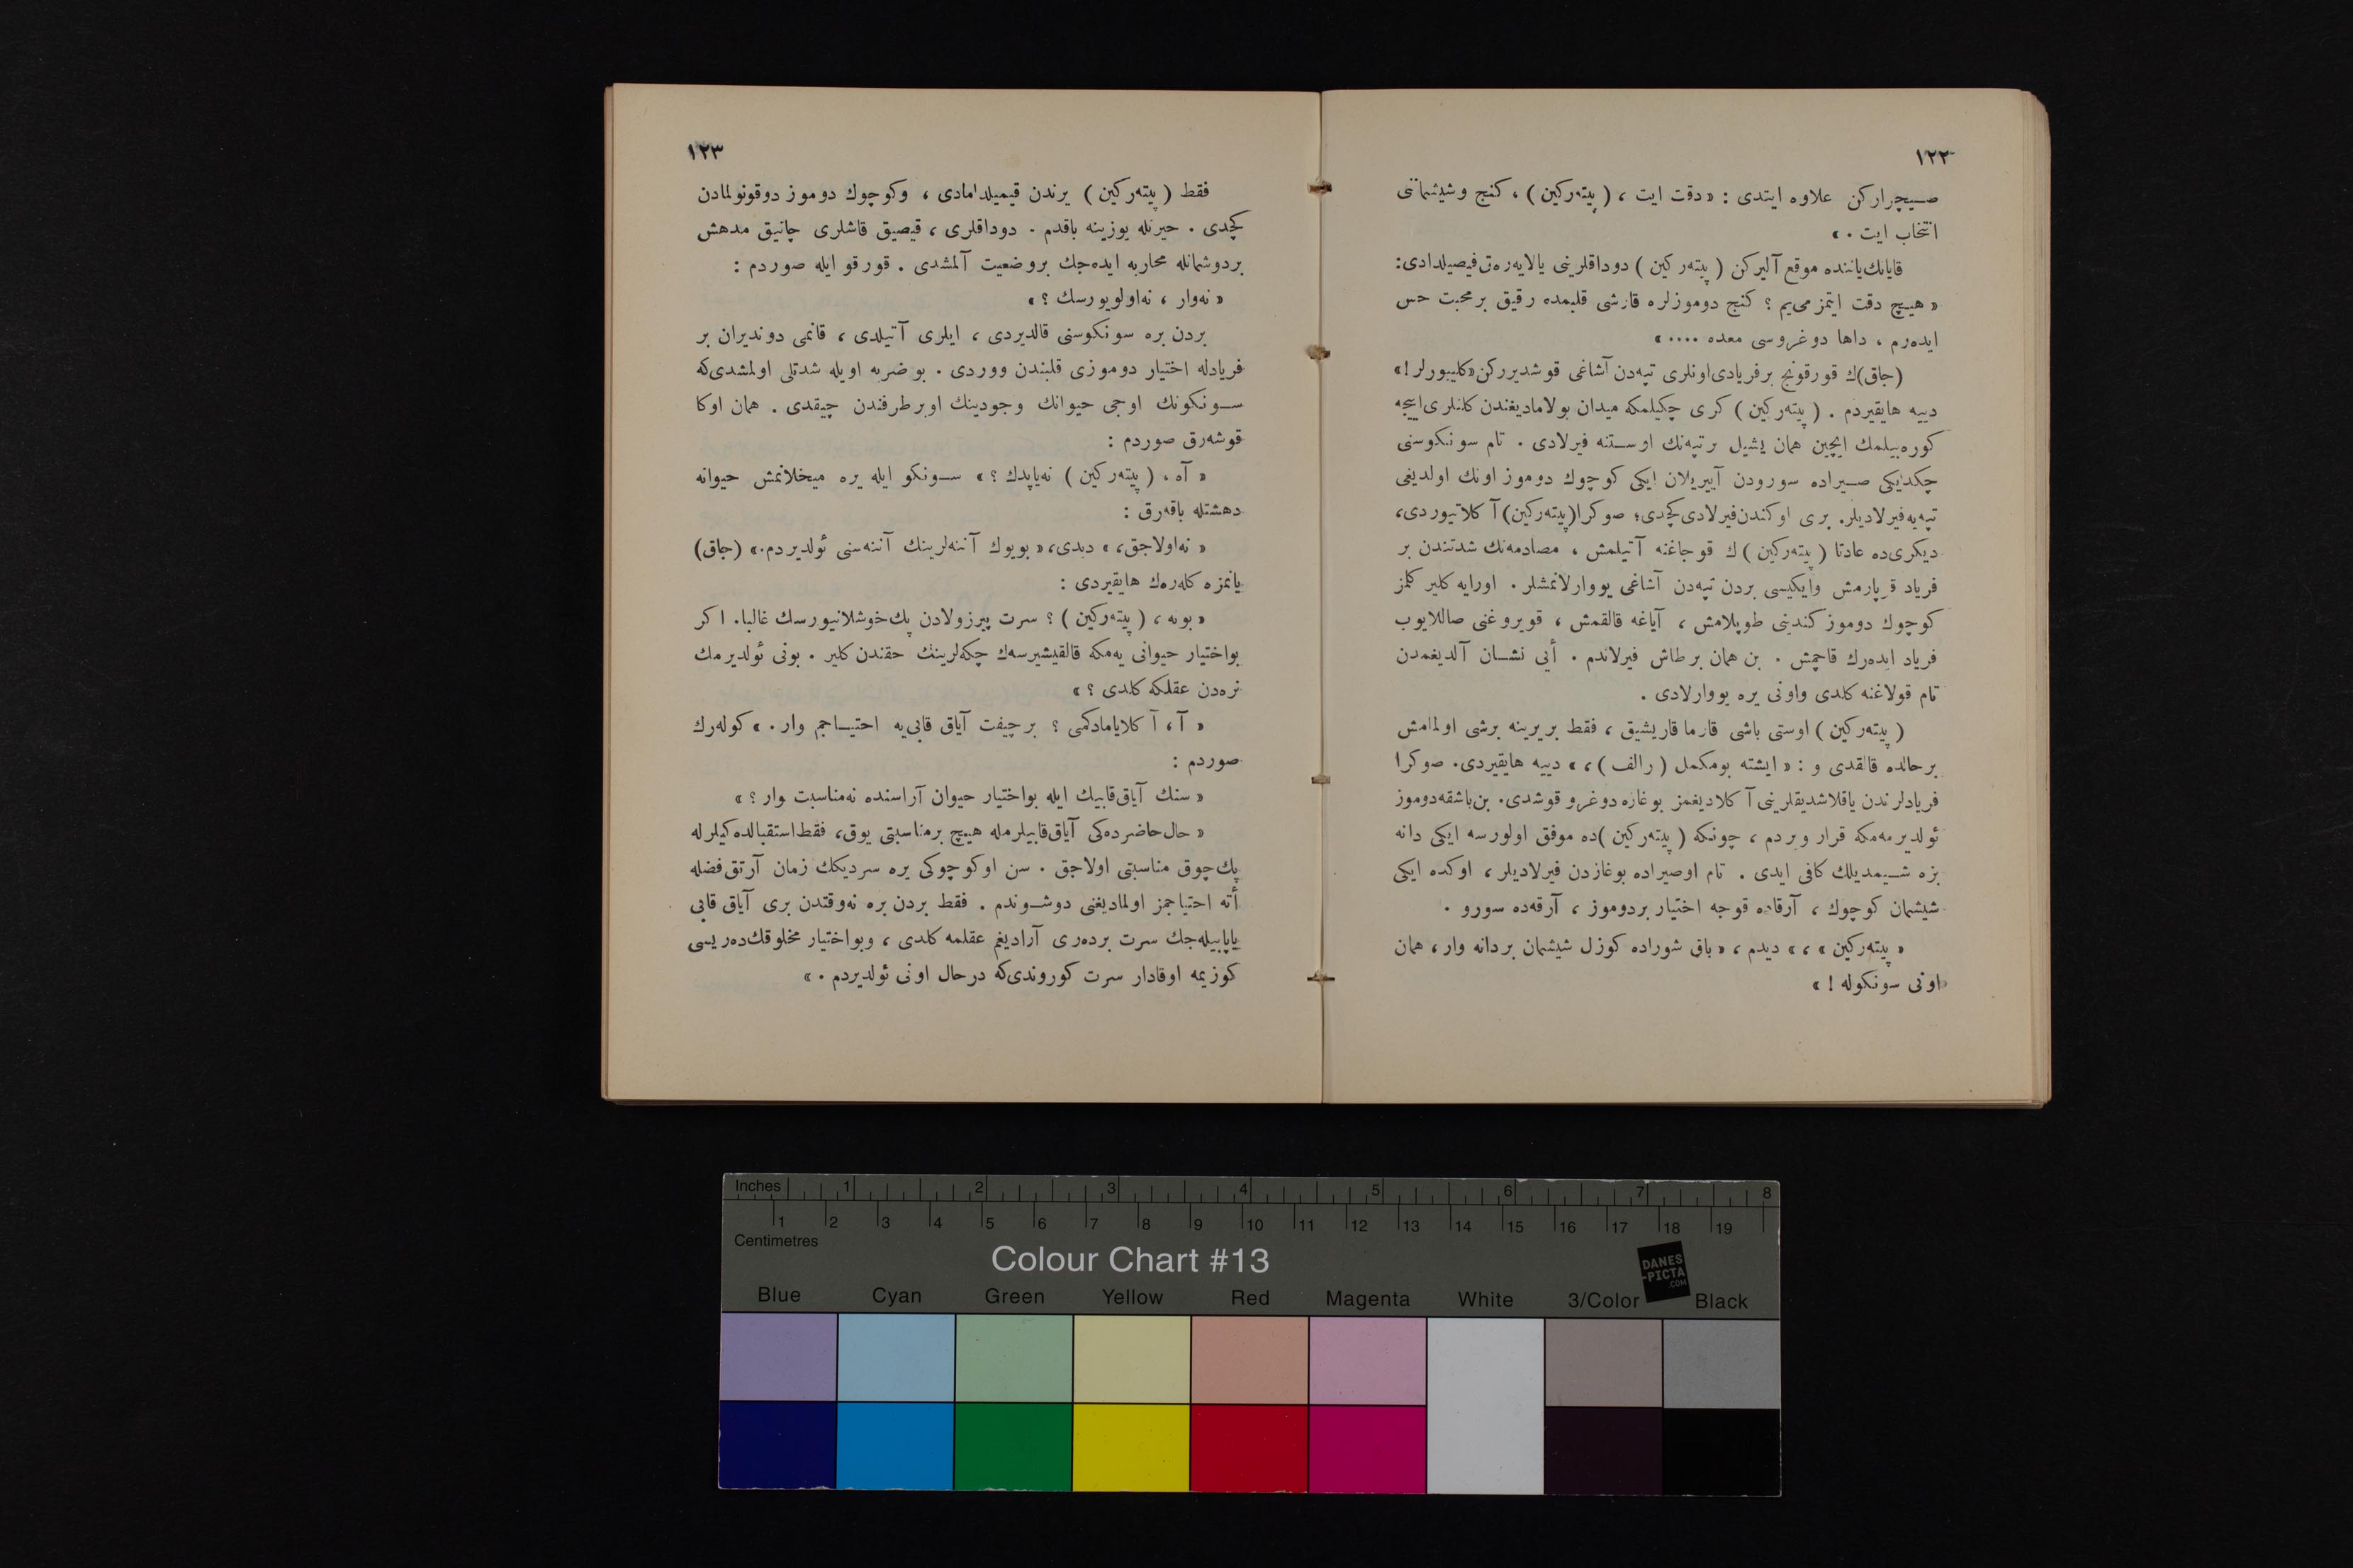 ١٢٢
صـیچرارکن علاوه ایتدی : «دقت ایت ، (پیته‌رکین) ، کنج وشیشمانی
انتخاب ایت . »
قایانك یاننده موقع آلیرکن (پیته‌رکین) دوداقلرینی یالایه‌رق فیصیلدادی:
« هیـچ دقت ایتمزمی‌یم ؟ کنج دوموزلره قارشی قلبمده رقیق برمحبت حس
ایده‌رم ، داها دوغروسی معده .... »
(جاق)ك قورقونج برفریادی اونلری تپه‌دن آشاغی قوشدیررکن «کلیبورلر!»
دییه هایقیردم . (پیته‌رکین) کری چکیلمکه میدان بولامادیغندن کلنلری ایجه
کوره‌بیلمك ایچین همان یشیل برتپه‌نك اوسـتنه فیرلادی . تام سونکوسنی
چکدیکی صـیراده سورودن آییریلان ایکی کوچوك دوموز اونك اولدیغی
تپه‌یه فیرلادیلر. بری اوکندن فیرلادی کچدی؛ صوکرا (پیته‌رکین) آ کلاتیوردی،
دیکری‌ده عادتا (پیته‌رکین)ك قوجاغنه آتیلمش ، مصادمه‌نك شدتندن بر
فریاد قوپارمش وایکیسی بردن تپه‌دن آشاغی یووارلانمشلر . اورایه کلیر کلمز
کوچوك دوموز کندینی طوپلامش ، آیاغه قالقمش ، قویروغنی صاللایوب
فریاد ایده‌رك قاچمش . بن همان برطاش فیرلاندم . أیی نشـان آلدیغمدن
تام قولاغنه کلدی واونی یره یووارلادی .
(پیته‌رکین) اوستی باشی قارماقاریشیق ، فقط بریرینه برشی اولمامش
برحالده قالقدی و : « ایشته بومکمل (رالف) ، » دییه هایقیردی. صوکرا
فریادلرندن یاقلاشدیقلرینی آ کلادیغمز بوغازه دوغرو قوشدی. بن باشقه دوموز
ئولدیرمه‌مکه قرار ویردم ، چونکه (پیته‌رکین)ده موفق اولورسه ایکی دانه
بزه شـیمدیلك کافی ایدی . تام اوصیراده بوغازدن فیرلادیلر ، اوکده ایکی
شیشمان کوچوك ، آرقاده قوجه اختیار بردوموز ، آرقه‌ده سورو .
« پیته‌رکین » ، » دیدم ، « باق شوراده کوزل شیشمان بردانه وار ، همان
اونی سونکوله ! »
١٢٣
فقط (پیته‌رکین) یرندن قیمیلدامادی ، وکوچوك دوموز دوقونولمادن
کچدی . حیرتله یوزینه باقدم . دوداقلری ، قیصیق قاشلری چاتیق مدهش
بردوشمانله محاربه ایده‌جك بروضعیت آلمشدی . قورقو ایله صوردم :
« نه‌وار ، نه‌اولویورسك ؟ »
بردن بره سونکوسنی قالدیردی ، ایلری آتیلدی ، قانمی دوندیران بر
فریادله اختیار دوموزی قلبندن ووردی . بوضربه اویله شدتلی اولمشدی‌که
سـونکونك اوجی حیوانك وجودینك اوبرطرفندن چیقدی . همان اوکا
قوشه‌رق صوردم :
« آه ، (پیته‌رکین) نه‌یاپدك ؟ » سـونکو ایله یره میخلانمش حیوانه
دهشتله باقه‌رق :
« نه‌اولاجق، » دیدی، « بویوك آننه‌لرینك آننه‌سنی ئولدیردم.» (جاق)
یانمزه کله‌رەك هایقیردی :
« بونه ، (پیته‌رکین) ؟ سرت پیرزولادن پك خوشلانیورسك غالبا. اکر
بواختیار حیوانی یه‌مکه قالقیشیرسه‌ك چکه‌لرینك حقندن کلیر . بونی ئولدیرمك
نره‌دن عقلکه کلدی ؟ »
« آ ، آ کلایامادکمی ؟ برچیفت آیاق قابی‌یه احتیـاجم وار . » کوله‌رك
صوردم :
« سنك آیاق قابیك ایله بواختیار حیوان آراسنده نه‌مناسبت وار ؟ »
« حال حاضرده‌کی آیاق قابیلرمله هیـچ برمناسبتی یوق، فقط استقبالده‌کیلرله
پك چوق مناسبتی اولاجق . سن اوکوچوکی یره سردیکك زمان آرتق فضله
أته احتیاجمز اولمادیغنی دوشـوندم . فقط بردن بره نه‌وقتدن بری آیاق قابی
یاپابیله‌جك سرت برده‌ری آرادیغم عقلمه کلدی ، وبواختیار مخلوقك ده‌ریسی
کوزیمه اوقادار سرت کوروندی‌که درحال اونی ئولدیردم . »
Inches 1 2 3 4 5 6 7 8
1 2 3 4 5 6 7 8 9 10 11 12 13 14 15 16 17 18 19
Centimetres
Colour Chart #13
DANES
-PICTA
.COM
Blue Cyan Green Yellow Red Magenta White 3/Color Black